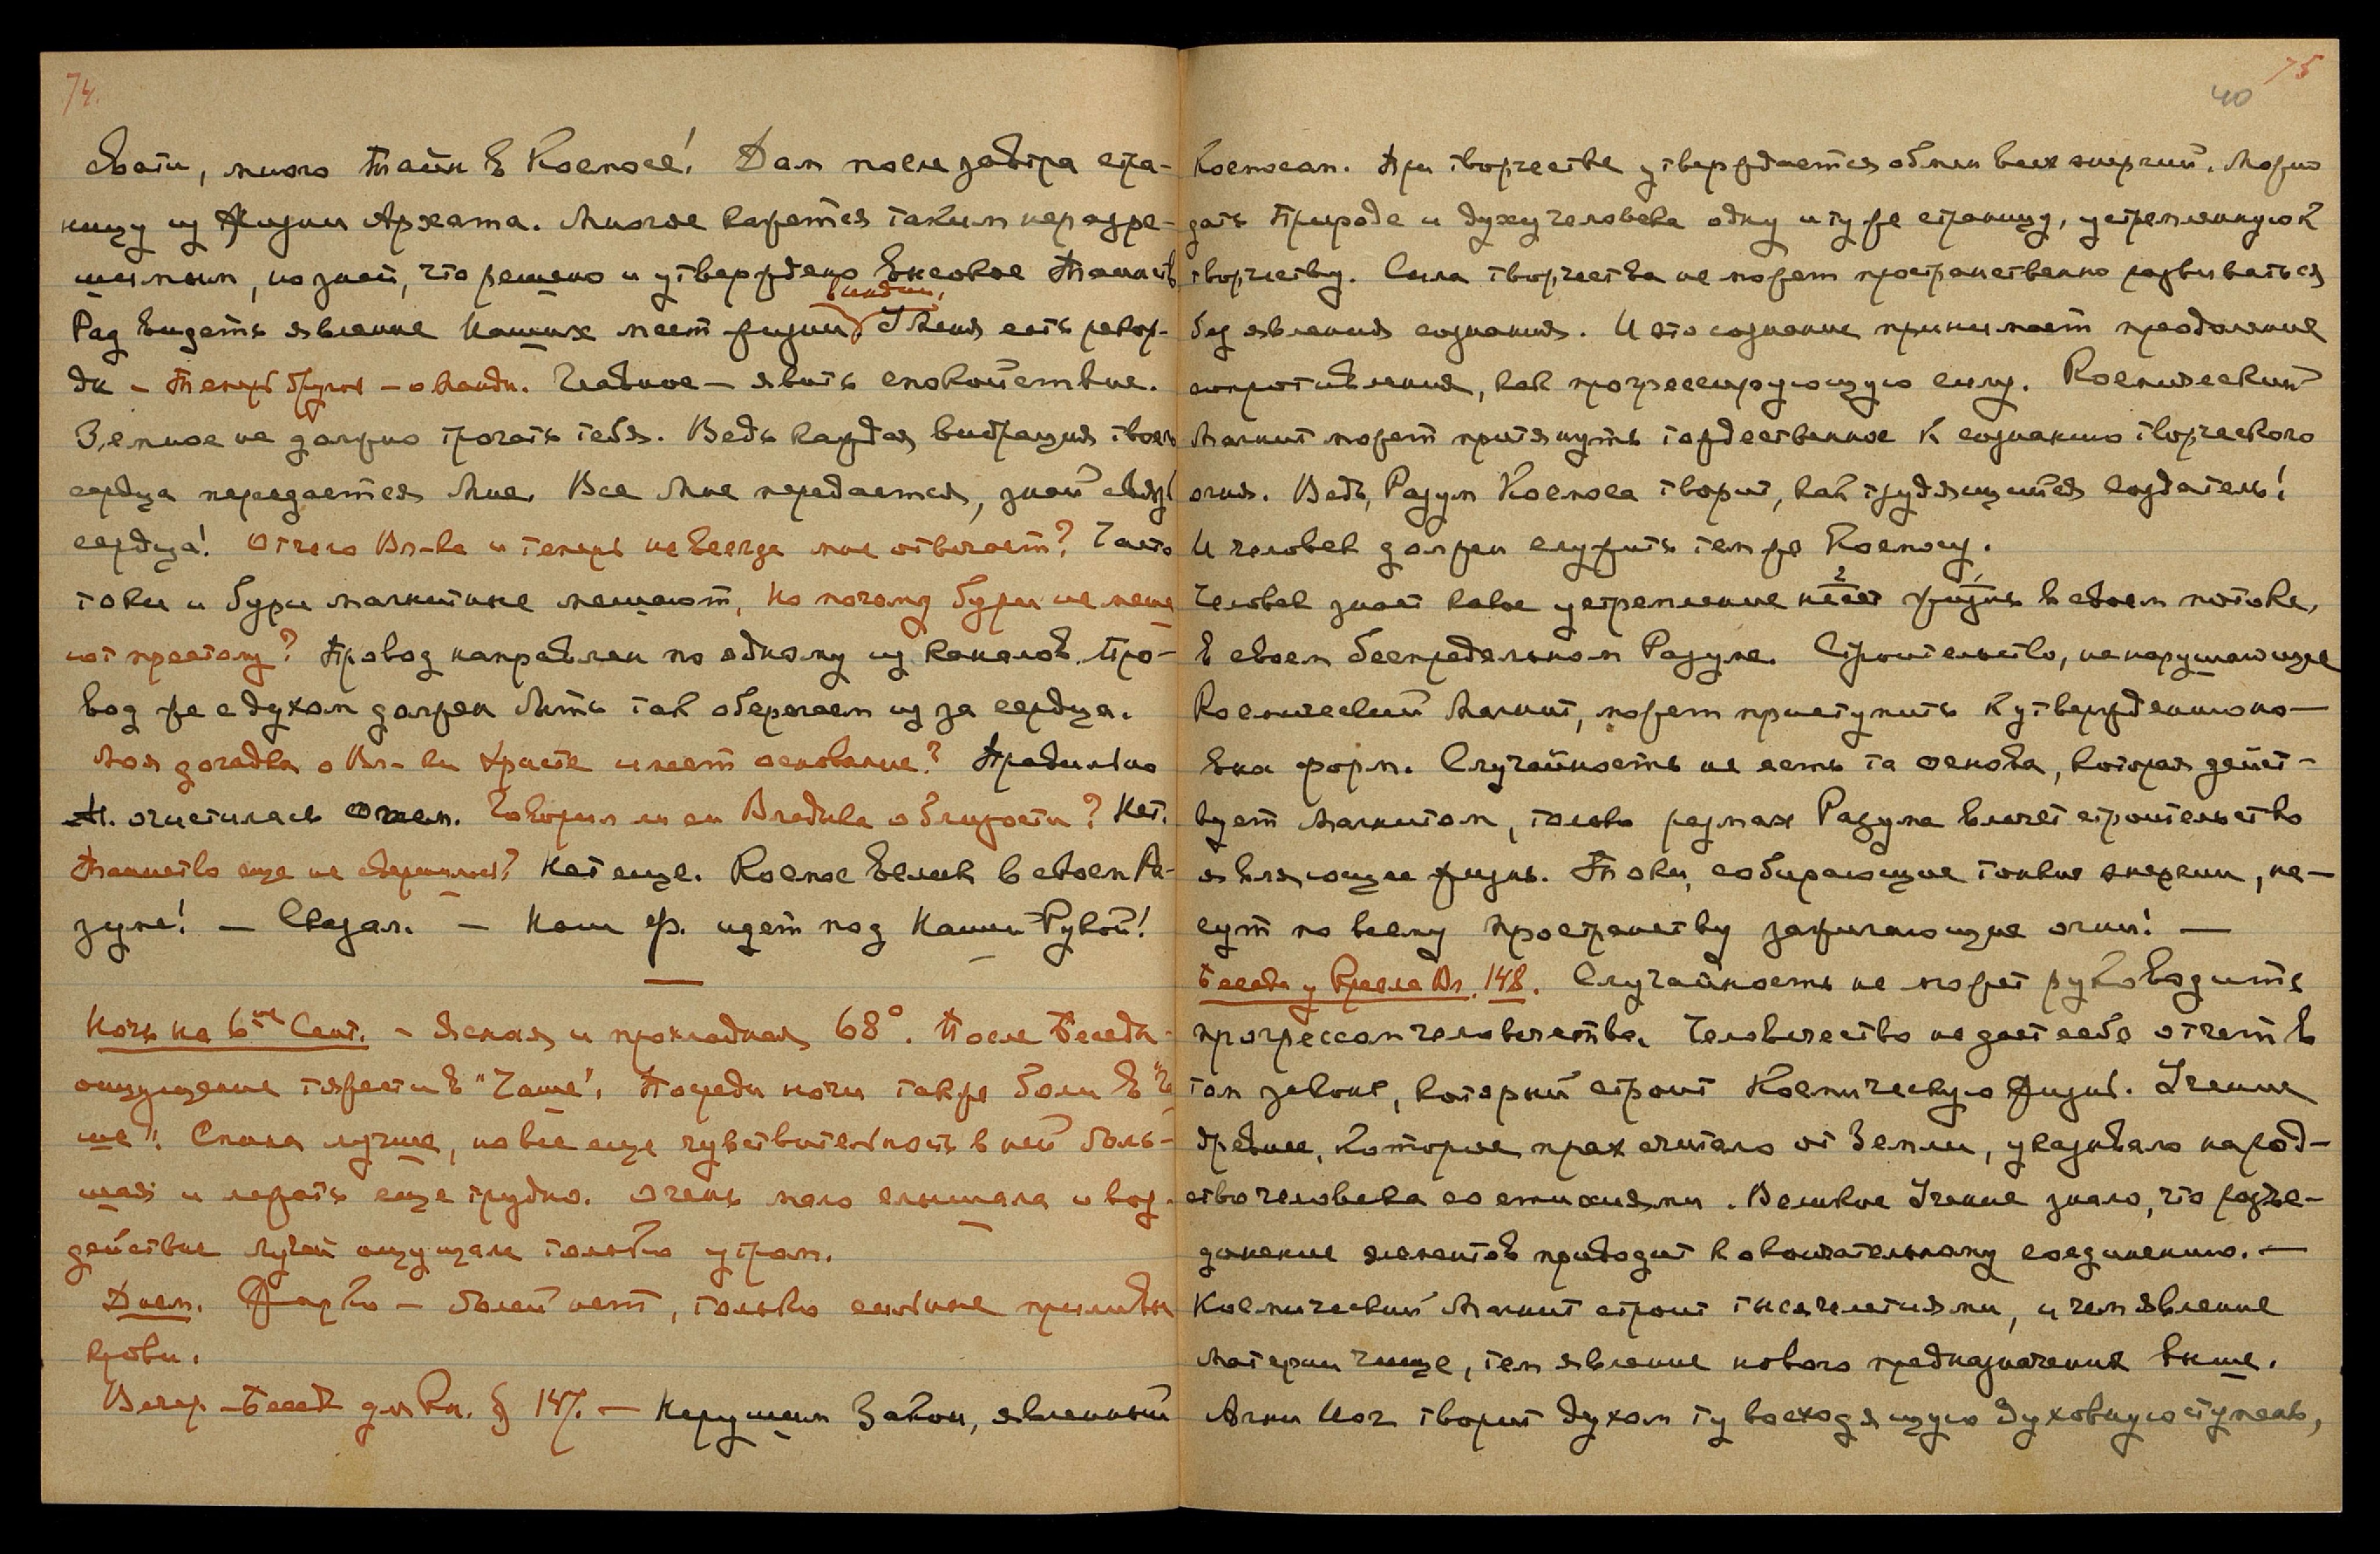 74.
свати, много Тайн в Космосе! Дам после завтра стра-
ницу из Жизни Архата. Многое кажется таким неразре-
шимым, но знай, что решено и утверждено Вековое Таинство
Рад видеть явление Наших мест жизни. У Меня есть рекор-
ды – Теперь – о Майди. Главное – явить спокойствие.
Земное не должно трогать тебя. Ведь каждая вибрация твоего
сердца передается Мне. Все Мне передается, знай связь
сердца! Отчего Вл-ка и теперь не всегда мне отвечает? Часто
токи и бури магнитные мешают, Но почему бури не меша
ют простому? Провод направлен по одному из каналов. Про-
вод же с духом должен быть так оберегаем из за сердца.
Моя догадка о Вл-ки Христе имеет основание? Правильно
М. очистилась огнем. Говорил ли ей Владыка о близости? Нет.
Таинство еще не свершилось? Нет еще. Космос велик в своем Ра-
зуме! – Сказал. – Наш Ф. идет под Нашей Рукой!
Ночь на 6ое Сент. – Ясная и прохладная 68°. После Беседы
ощущение тяжести в "Чаше". Посреди ночи также боли в "Ча
ше". Спала лучше, но все еще чувствительность в ней боль-
шая и лежать еще трудно. Очень мало слышала и воз-
действие лучей ощущала только утром.
Днем. Жарко – болей нет, только сильные приливы
крови.
Вечер – Бесед. для Кн. § 147. – Нерушим Закон, явленный
75
40
Космосом. При творчестве утверждается обмен всех энергий. Можно
дать Природе и духу человека одну и ту же страницу, устремленную к
творчеству. Сила творчества не может пространственно развиваться
без явления сознания. И это сознание принимает преодоление
сопротивления, как прогрессирующую силу. Космический
Магнит может притянуть тождественное к сознанию творческого
огня. Ведь, Разум Космоса творит, как трудящийся создатель!
И человек должен служить тем же Космосу.
2 1
Человек знает какое устремление несет жизнь в своем потоке,
в своем беспредельном Разуме. Строительство, не нарушающее
Космический Магнит, может приступить к утверждению но-
вых форм. Случайность не есть та основа, которая дейст-
вует Магнитом, только размах Разума влечет строительство
являющее жизнь. Токи, собирающие тонкие энергии, не-
сут по всему пространству зажигающие огни! –
Беседа у Кресла Вл. 148. Случайность не может руководить
прогрессом человечества. Человечество не дает себе отчет в
том законе, который строит Космическую Жизнь. Учение
древнее, которое прах считало от Земли, указывало на род-
ство человека со стихиями. Великое Учение знало, что разъе-
динение элементов приводит к окончательному соединению. –
Космический Магнит строит тысячелетиями, и чем явление
материи чище, тем явление нового предназначения выше.
Агни Йог творит духом ту восходящую духовную ступень,